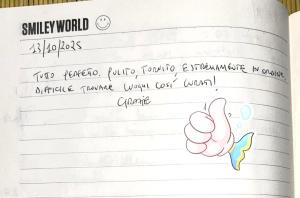 SMILEYWORLD
13/10/2025
TUTTO PERFETTO. PULITO, FORNITO, ESTREMAMENTE IN ORDINE
DIFFICILE TROVARE LUOGHI COSÌ CURATI!
GRAZIE